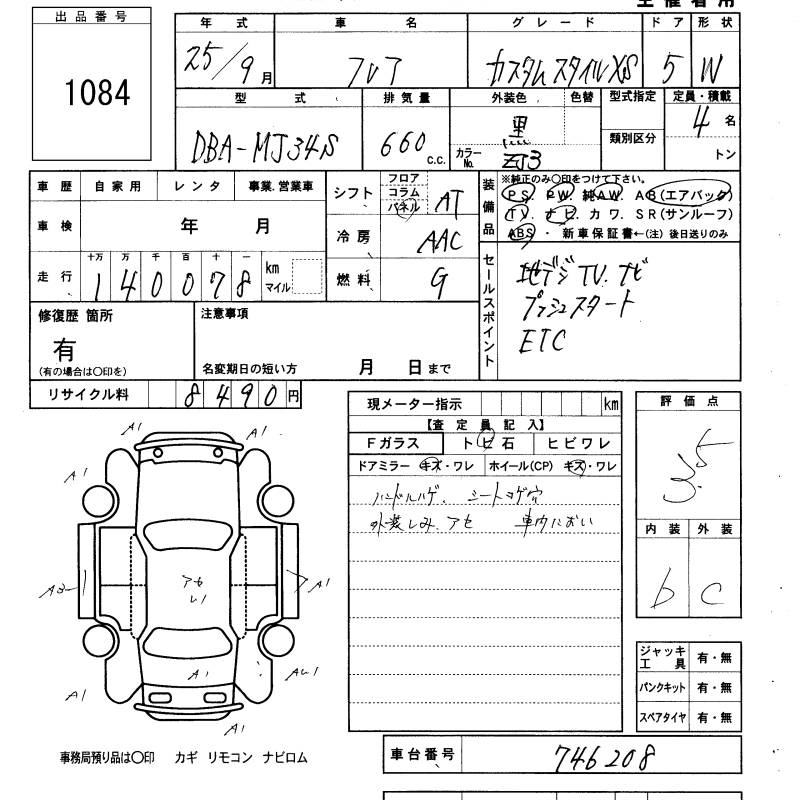 出品番号
1084
年式 車名 グレード ドア 形状
25/9月 フレア カスタムスタイルXS 5 W
型式 排気量 外装色 色替 型式指定 定員・積載
DBA-MJ34S 660 c.c. 黒 カラーNo. ZJ3 類別区分 4名 トン
車歴 自家用 レンタ 事業.営業車
車検 年 月
走行 十万 万 千 百 十 一
140078 km マイル
シフト フロア コラム パネル AT
冷房 AAC
燃料 G
装備品 ※純正のみ〇印をつけて下さい。
PS. PW. 純AW. AB(エアバック)
TV. ナビ カワ. SR(サンルーフ)
ABS ・ 新車保証書←(注) 後日送りのみ
セールスポイント
地デジTV.ナビ
プッシュスタート
ETC
修復歴 箇所
有
(有の場合は〇印を)
注意事項
名変期日の短い方 月 日まで
リサイクル料 8490円
現メーター指示 km
【査定員記入】
Fガラス トビ石 ヒビワレ
ドアミラー キズ・ワレ ホイール(CP) キズ・ワレ
ハンドルハゲ. シートコゲ穴
外装しみ.アセ 車内におい
評価点
3.5
内装 外装
b C
ジャッキ工具 有・無
パンクキット 有・無
スペアタイヤ 有・無
A1 A1
A1
アセ
A1
A1
A1
A1
事務局預り品は〇印 カギ リモコン ナビロム
車台番号 746208